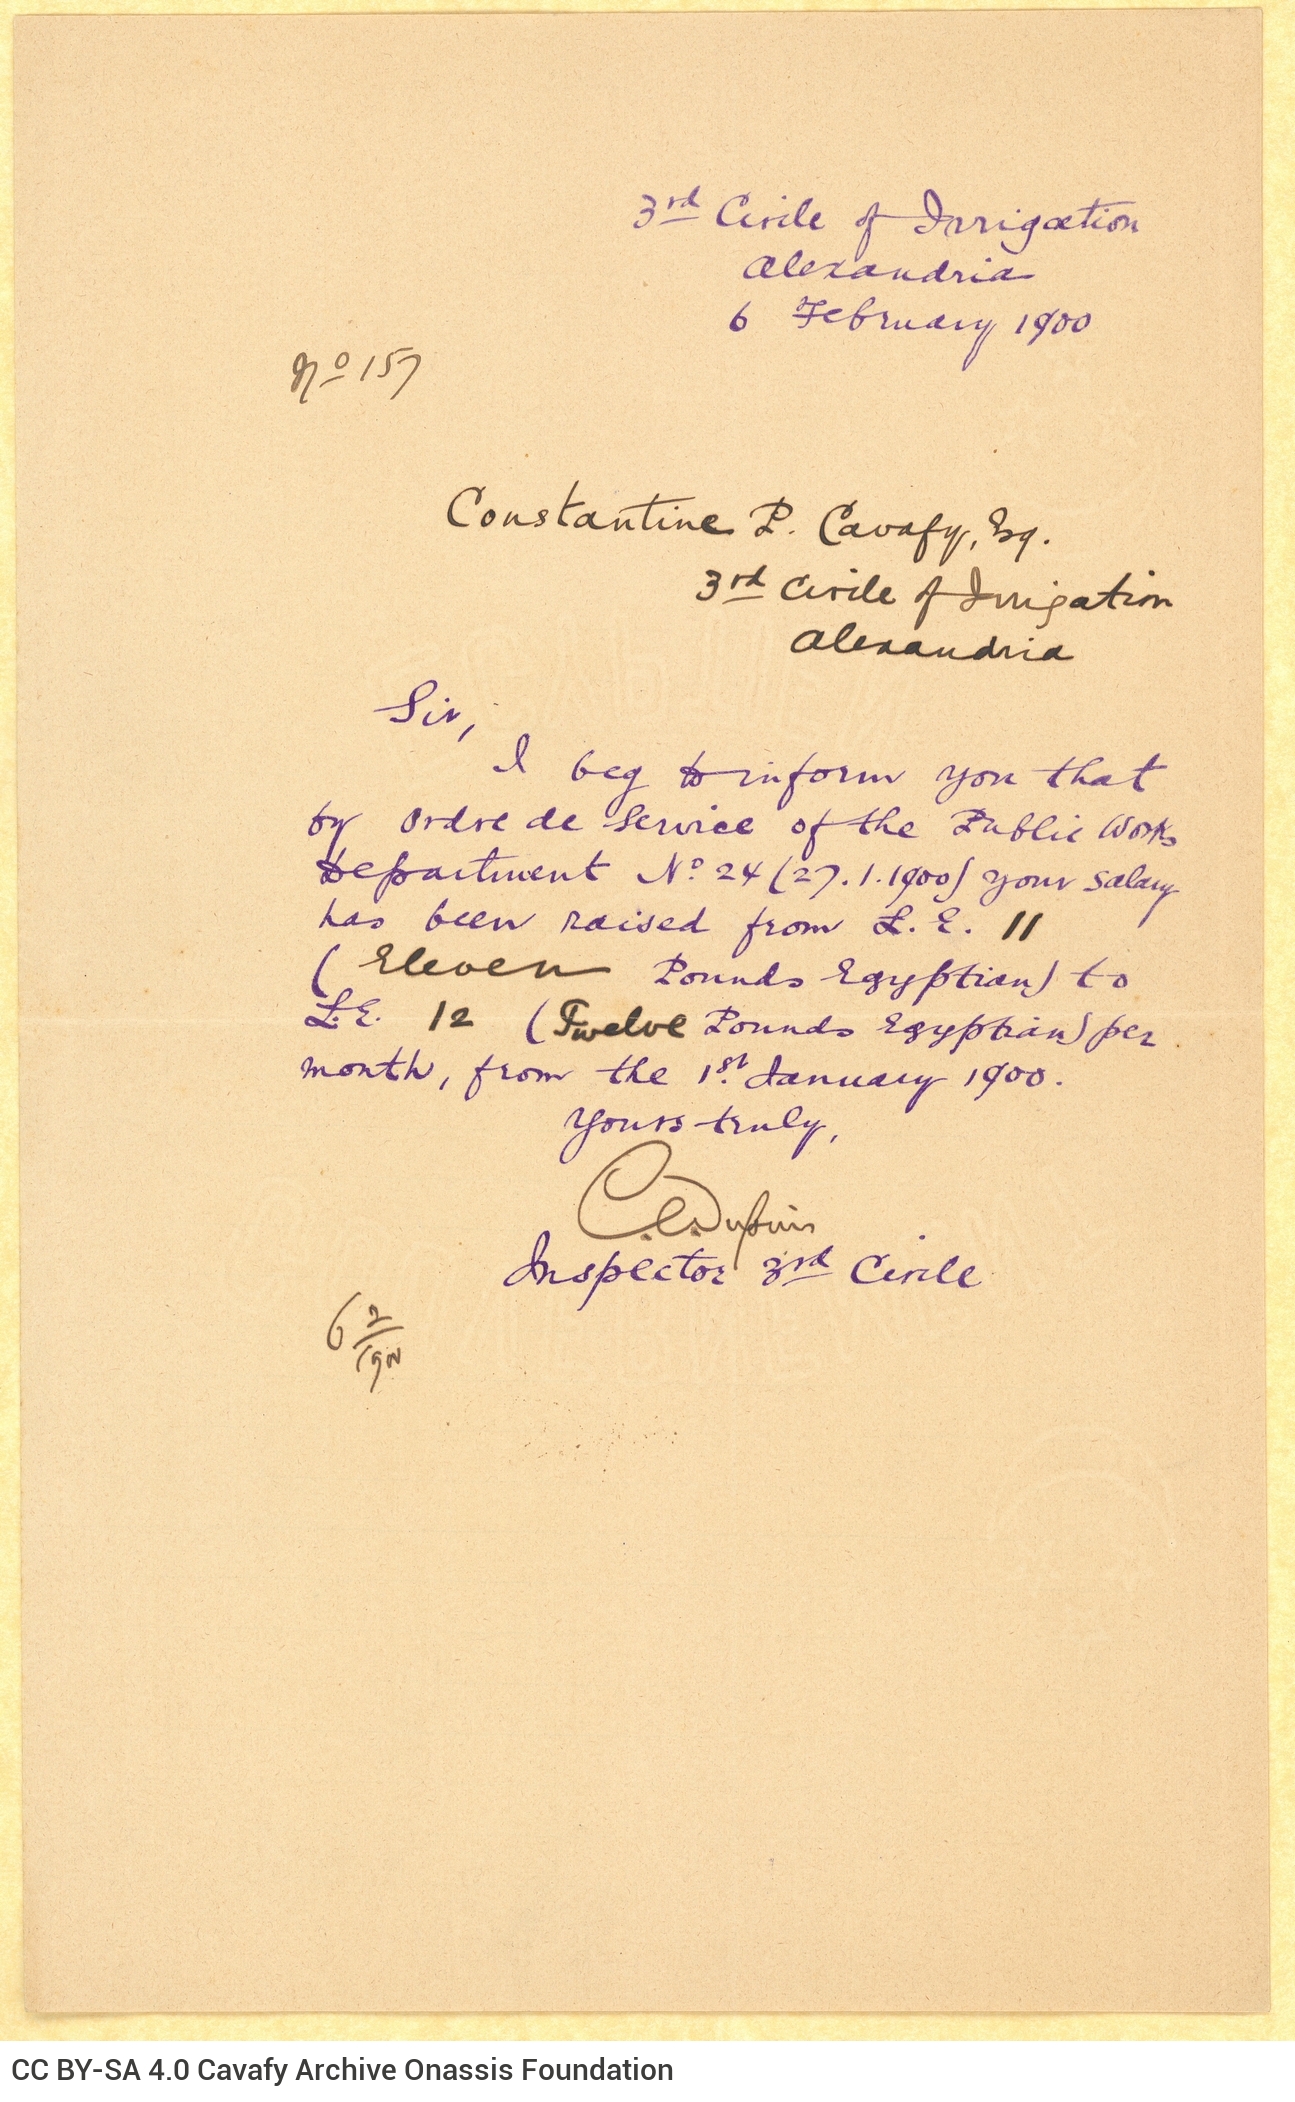 3rd Circle of Irrigation
Alexandria
6 February 1900
No 157
Constantine P. Cavafy, Esq.
3rd Circle of Irrigation
Alexandria
Sir,
I beg to inform you that
by Ordre de Service of the Public Works
Department No. 24 (27.1.1900) your salary
has been raised from L.E. 11
(Eleven Pounds Egyptian) to
L.E. 12 (Twelve Pounds Egyptian) per
month, from the 1st. January 1900.
Yours truly,
Inspector 3rd Circle
6 2/1900
CC BY-SA 4.0 Cavafy Archive Onassis Foundation